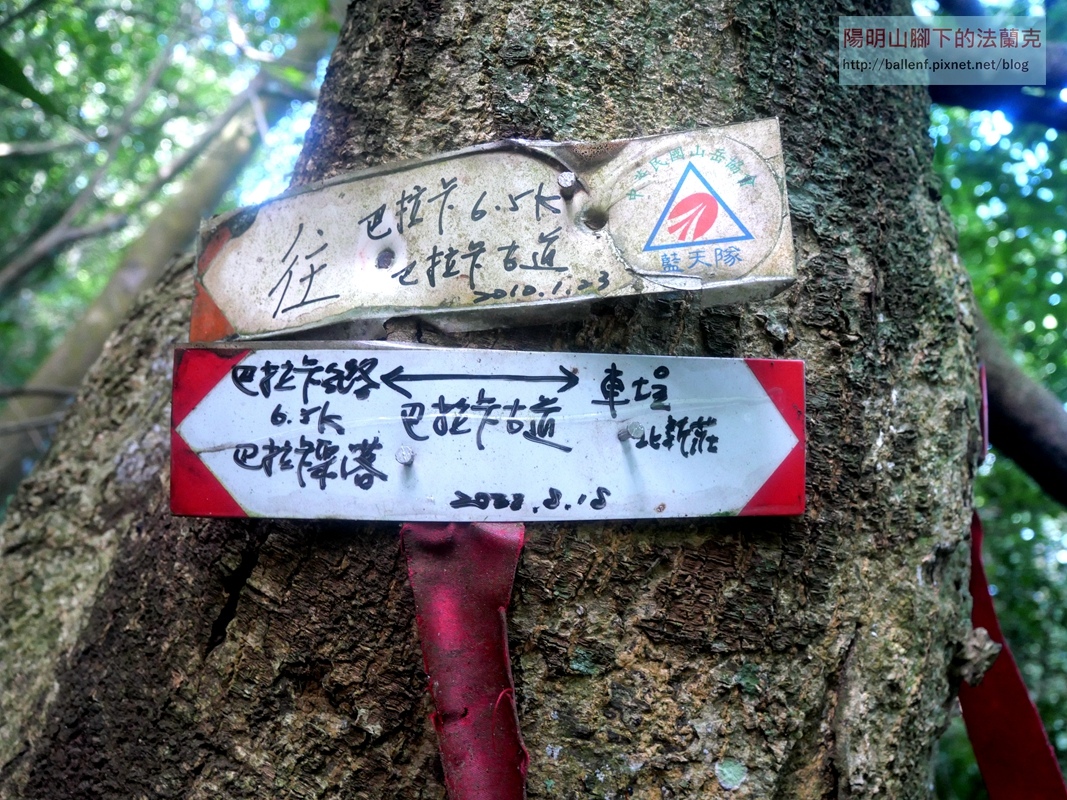 陽明山腳下的法蘭克
http://ballenf.pixnet.net/blog
中華民國山岳協會
藍天隊
往
巴拉卡 6.5K
巴拉卡古道
2010.1.23
巴拉卡公路
6.5K
巴拉卡聚落
巴拉卡古道
車埕
北新莊
8.18